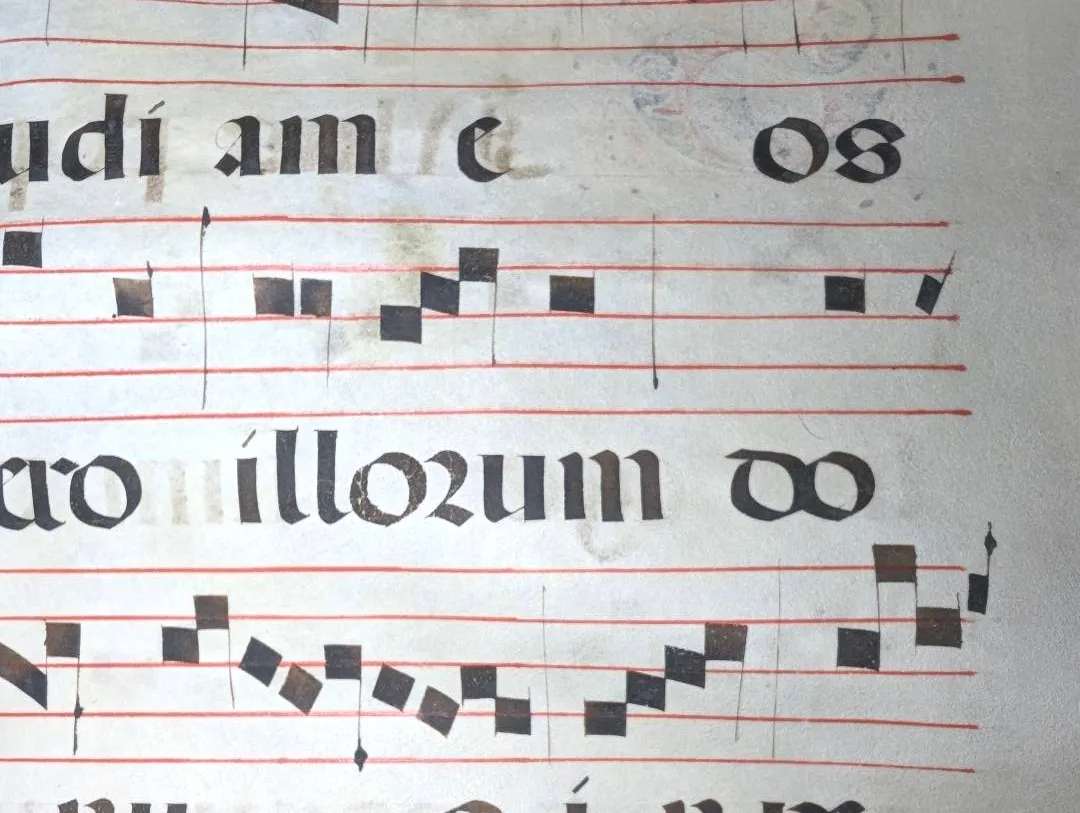 udi am e os
ero illorum do